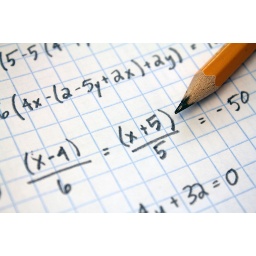 (5-5(4
6(4x-(2-5y+2x)+2y) =
(x-4)/6 = (x+5)/5 = -50
4y + 32 = 0